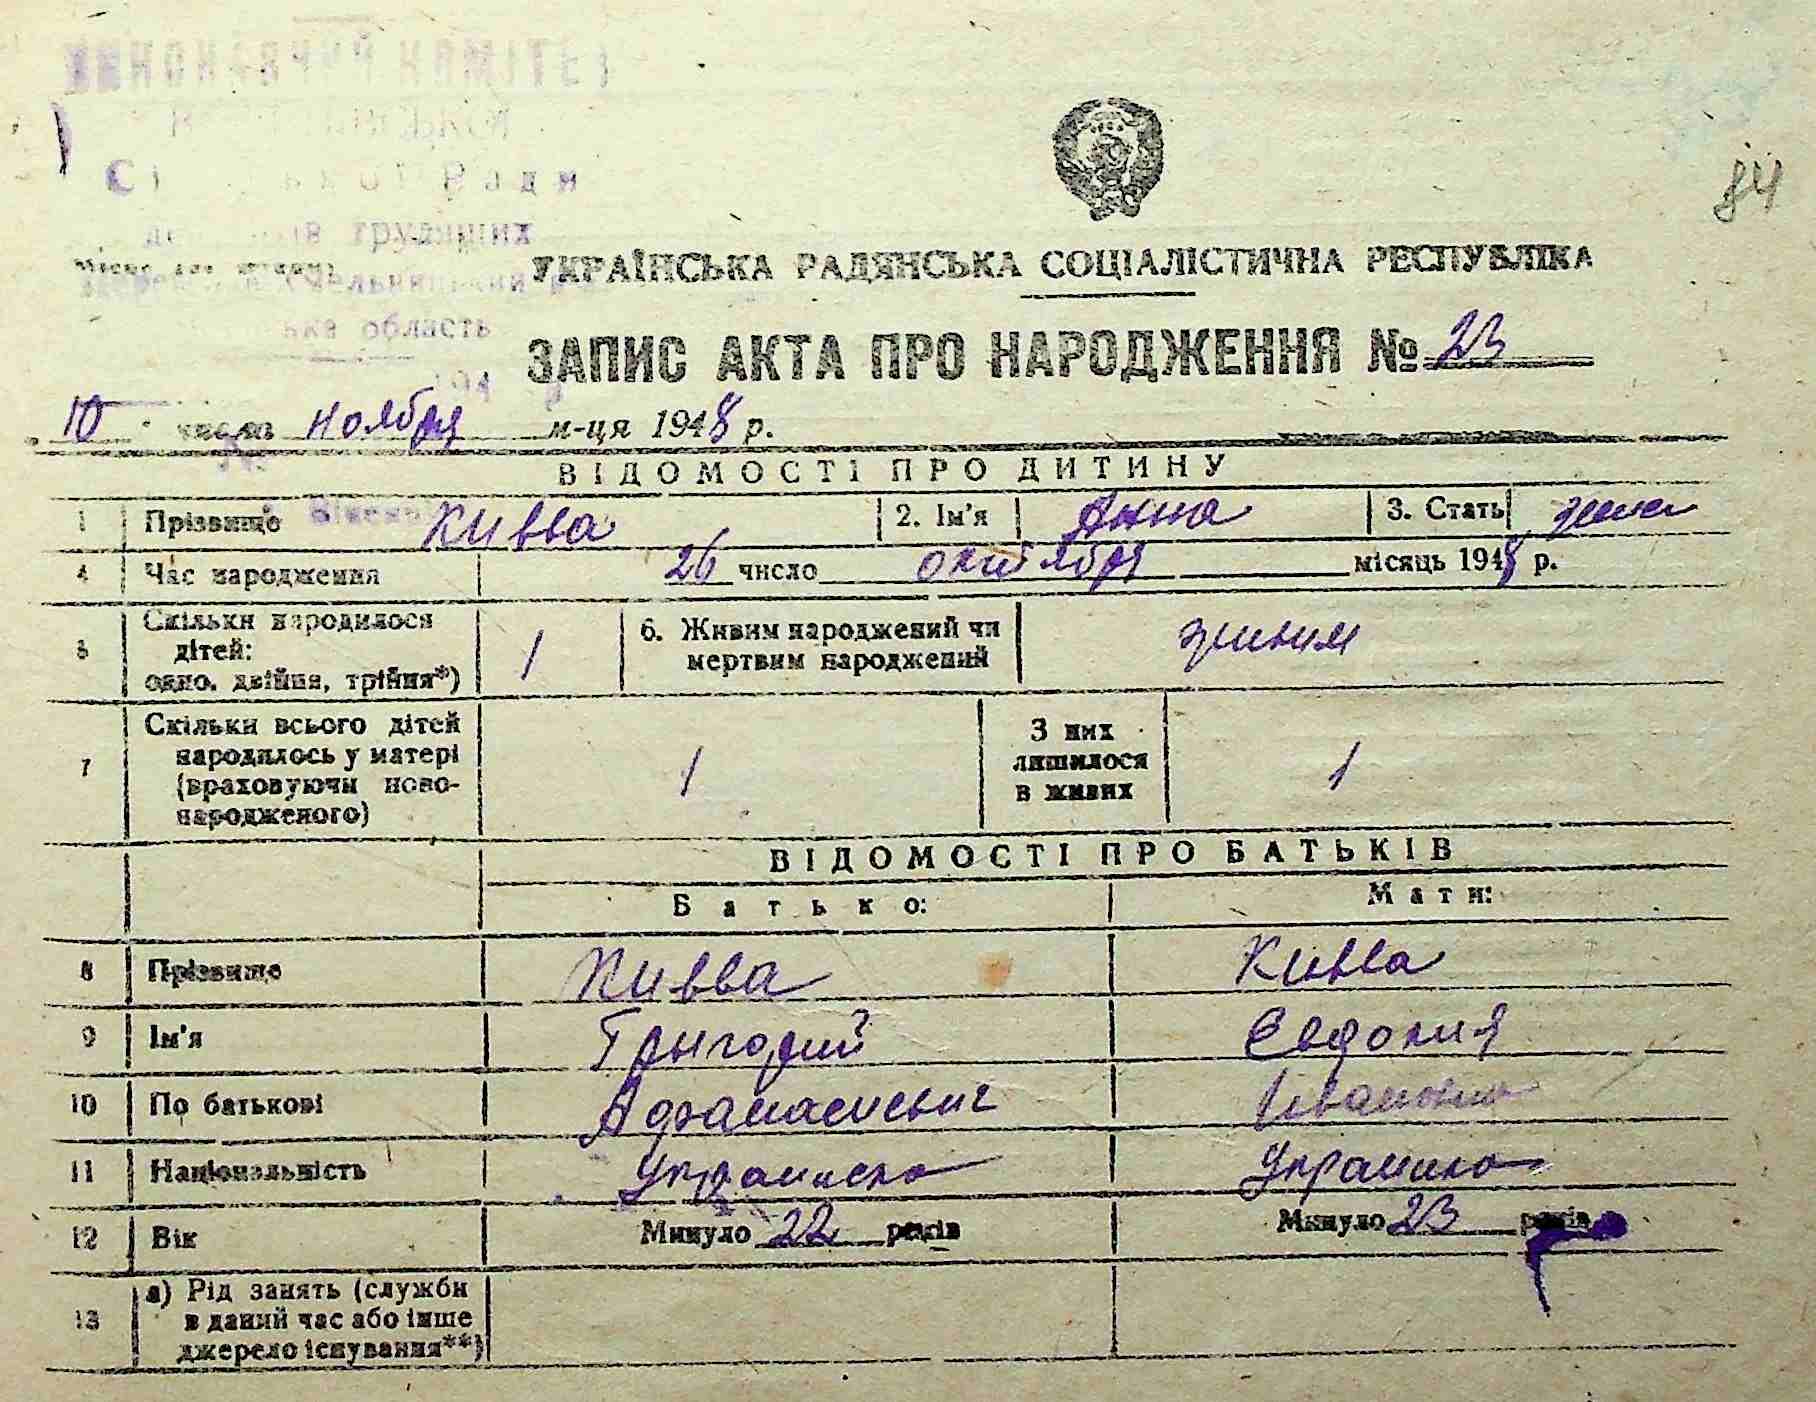 ВИКОНАВЧИЙ КОМІТЕТ
Ради
трудящих
область
84
УКРАЇНСЬКА РАДЯНСЬКА СОЦІАЛІСТИЧНА РЕСПУБЛІКА
ЗАПИС АКТА ПРО НАРОДЖЕННЯ № 23
10 число ноября м-ця 1948 р.
ВІДОМОСТІ ПРО ДИТИНУ
1 Прізвище Кивва 2. Ім'я Анна 3. Стать жен
4 Час народження 26 число октября місяць 1948 р.
5 Скільки народилося дітей: одно, двійня, трійня*) 1 6. Живим народжений чи мертвим народжений живим
7 Скільки всього дітей народилось у матері (враховуючи новонародженого) 1 З них лишилося в живих 1
ВІДОМОСТІ ПРО БАТЬКІВ
Батько: Мати:
8 Прізвище Кивва Кивва
9 Ім'я Григорий Євдокия
10 По батькові Афанасиевич Ивановна
11 Національність Украинец Украинка
12 Вік Минуло 22 років Минуло 23 років
13 а) Рід занять (служби в даний час або інше джерело існування**)